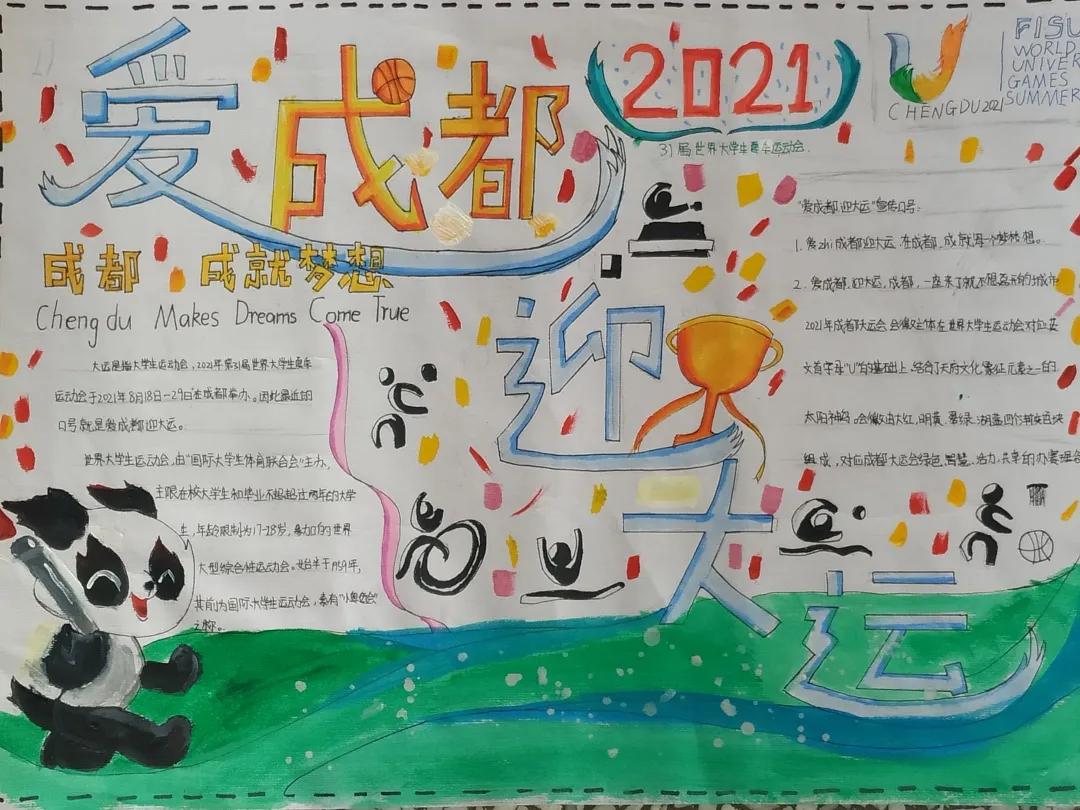 爱成都
2021
31届世界大学生夏季运动会.
CHENGDU2021
FISU
WORLD
UNIVER
GAMES
SUMMER
成都 成就梦想
Chengdu Makes Dreams Come True
大运是指大学生运动会,2021年第31届世界大学生夏季
运动会于2021年8月18日-29日在成都举办。因此最近的
口号就是爱成都迎大运。
世界大学生运动会,由“国际大学生体育联合会”主办,
主限在校大学生和毕业不超过两年的大学
生,年龄限制为17-28岁,的世界
大型综合性运动会。始于1959年,
其前为国际大学生运动会,素有“小奥运会”
之称。
迎大运
“爱成都 迎大运”宣传口号:
1. 爱zhi成都迎大运,在成都,成就每一个梦想。
2. 爱成都,迎大运,成都,一座来了就不想离开的城市
2021年成都大运会会徽主体在世界大学生运动会对应英
文首字母“U”的基础上,结合了天府文化象征元素之一的
太阳神鸟。会徽由大红,明黄,翠绿,湖蓝四个渐变色块
组成,对应成都大运会绿色,智慧,活力,共享的办赛理念